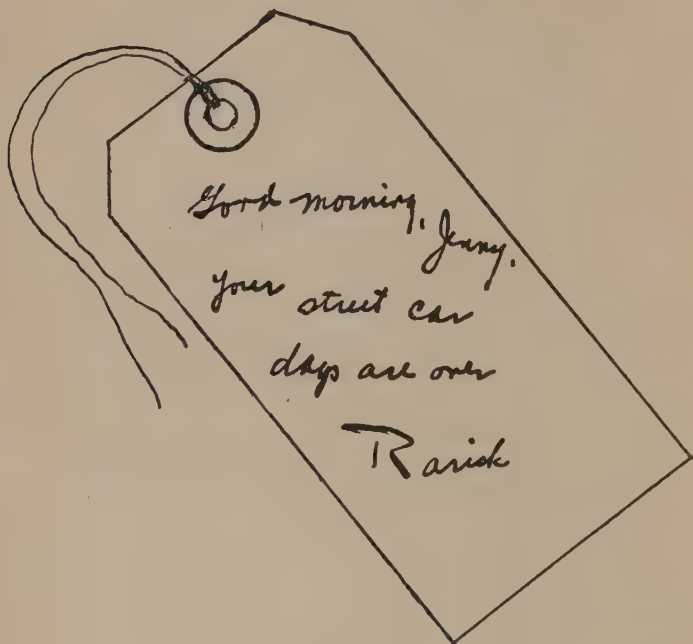 Good morning, Jenny.
Your street car
days are over
Rarick